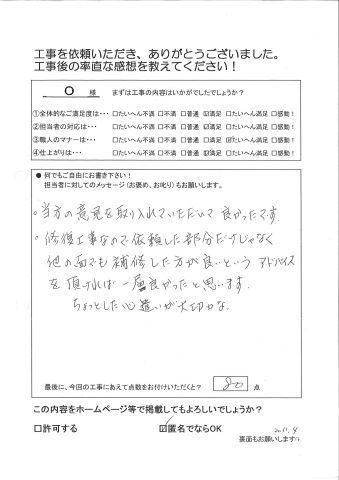 工事を依頼いただき、ありがとうございました。
工事後の率直な感想を教えてください！
O 様 まずは工事の内容はいかがでしたでしょうか？
①全体的なご満足度は… □たいへん不満 □不満 □普通 ☑満足 □たいへん満足 □感動！
②担当者の対応は… □たいへん不満 □不満 □普通 ☑満足 □たいへん満足 □感動！
③職人のマナーは… □たいへん不満 □不満 □普通 □満足 ☑たいへん満足 □感動！
④仕上がりは… □たいへん不満 □不満 □普通 ☑満足 □たいへん満足 □感動！
● 何でもご自由にお書き下さい！
担当者に対してのメッセージ（お褒め、お叱り）もお願いします。
。当方の意見を取り入れていただいて良かったです
。修復工事なので依頼した部分だけじゃなく
他の面でも補修した方が良いというアドバイス
を頂ければ一層良かったと思います。
ちょっとした心遣いが大切かな。
最後に、今回の工事にあえて点数をお付けいただくと？ 80 点
この内容をホームページ等で掲載してもよろしいでしょうか？
□許可する ☑匿名でならOK 2011.9
裏面もお願いします